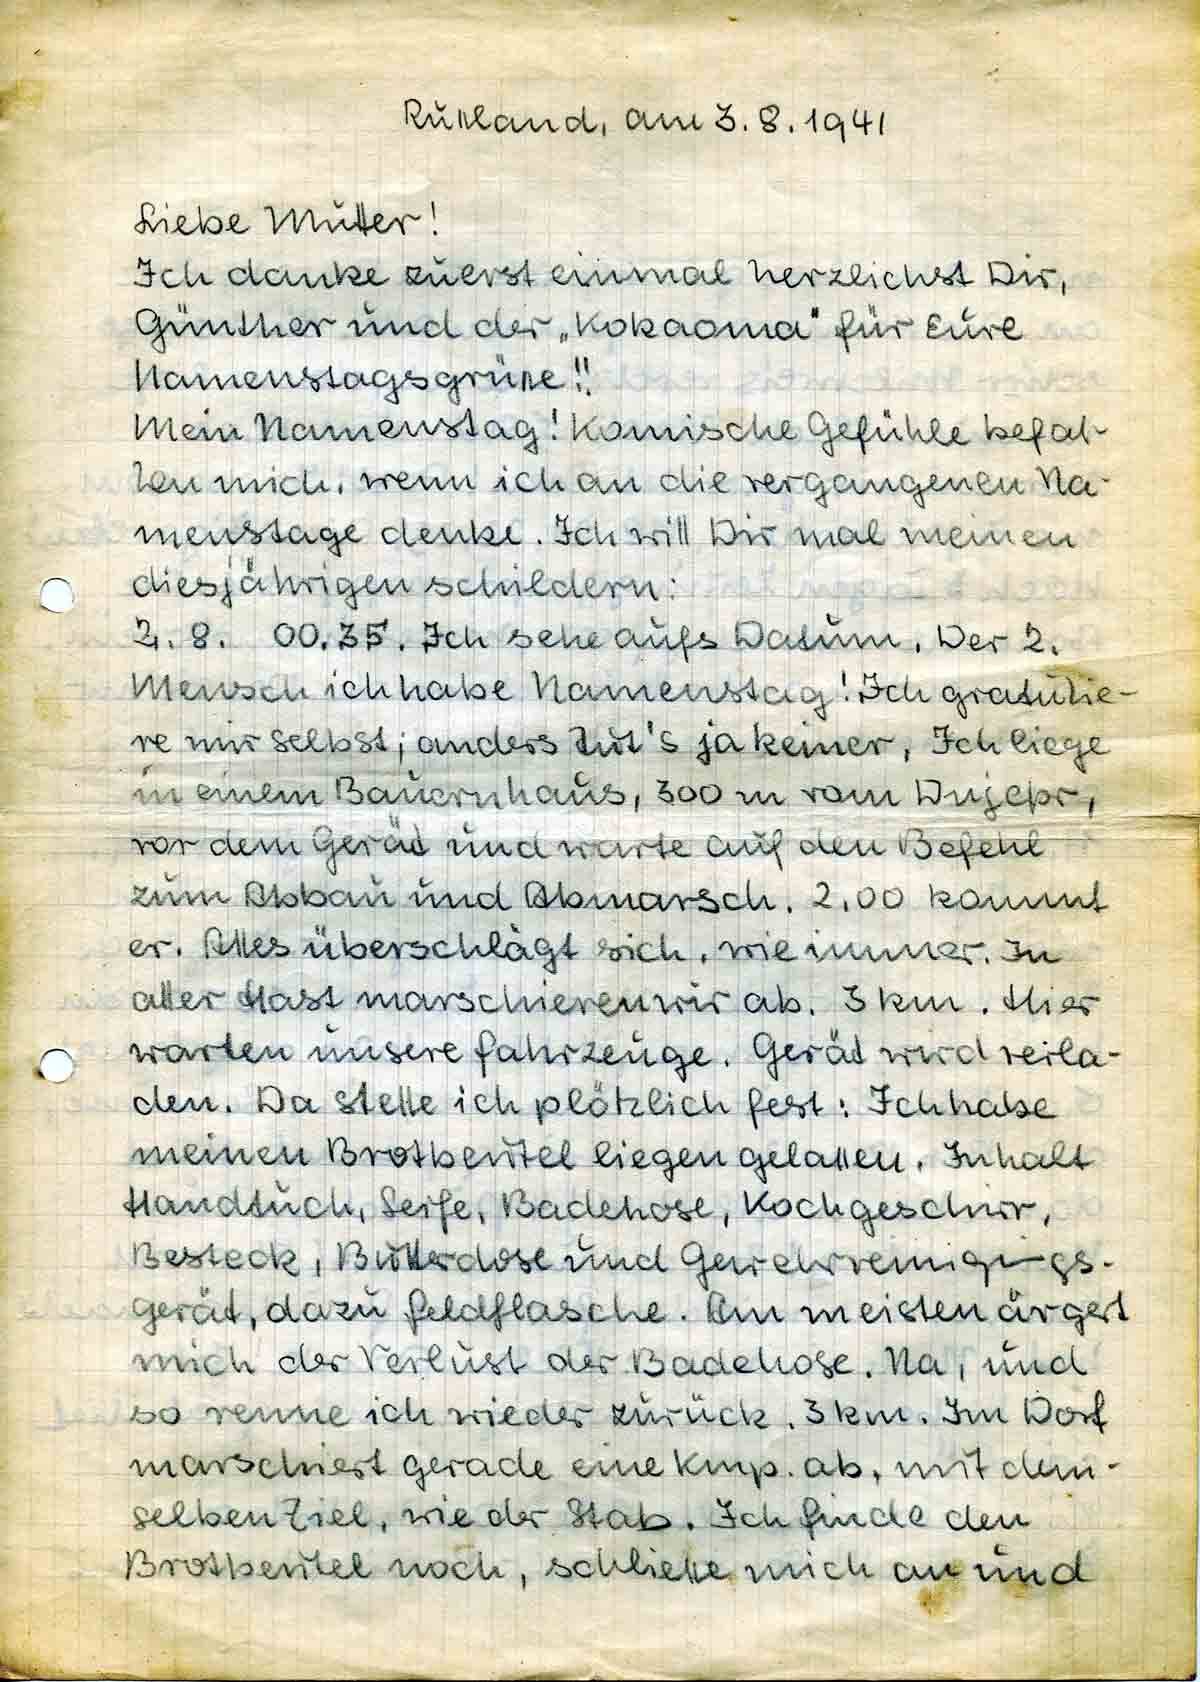 Rußland, am 3.8.1941
Liebe Mutter!
Ich danke zuerst einmal herzlichst Dir,
Günther und der „Kokaoma" für Eure
Namenstagsgrüße!!
Mein Namenstag! Komische Gefühle befal-
len mich, wenn ich an die vergangenen Na-
menstage denke. Ich will Dir mal meinen
diesjährigen schildern:
2.8. 00.35. Ich sehe aufs Datum. Der 2.
Mensch ich habe Namenstag! Ich gratulie-
re mir selbst; anders tut's ja keiner. Ich liege
in einem Bauernhaus, 300 m vom Dnjepr,
vor dem Gerät und warte auf den Befehl
zum Abbau und Abmarsch. 2.00 kommt
er. Alles überschlägt sich, wie immer. In
aller Hast marschieren wir ab. 3 km. Hier
warten unsere Fahrzeuge. Gerät wird verla-
den. Da stelle ich plötzlich fest: Ich habe
meinen Brotbeutel liegen gelassen. Inhalt
Handtuch, Seife, Badehose, Kochgeschirr,
Besteck, Butterdose und Gewehrreinigungs-
gerät, dazu Feldflasche. Am meisten ärgert
mich der Verlust der Badehose. Na, und
so renne ich wieder zurück. 3 km. Im Dorf
marschiert gerade eine Kmp. ab, mit dem-
selben Ziel, wie der Stab. Ich finde den
Brotbeutel noch, schließe mich an und